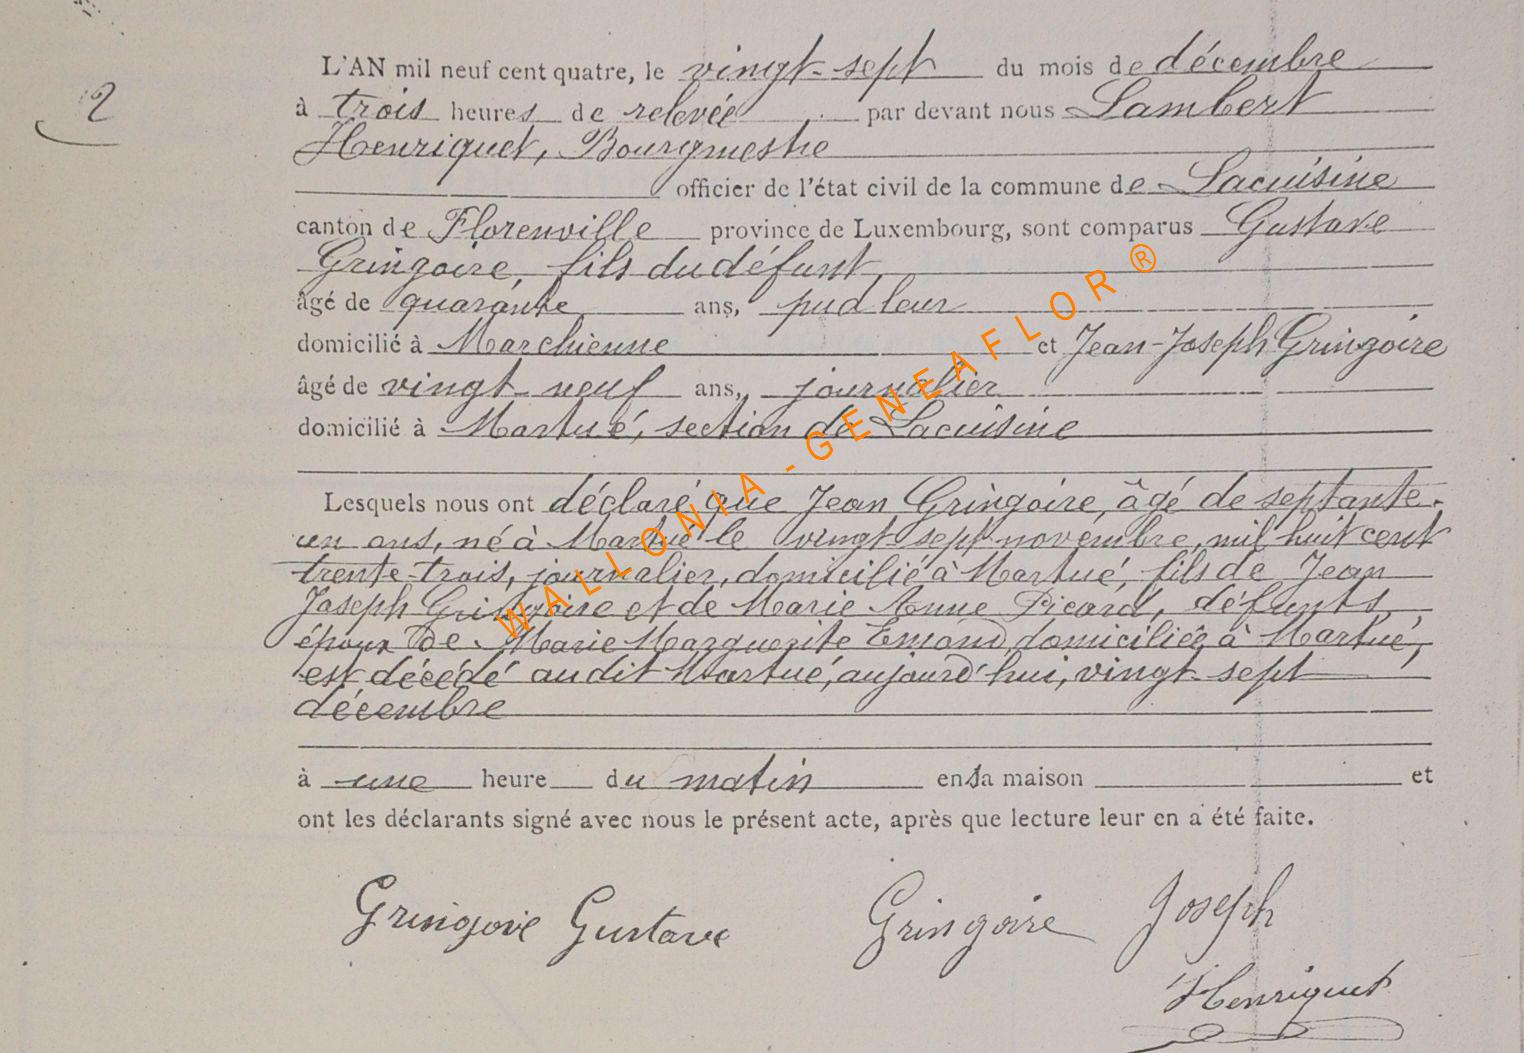 2
L'AN mil neuf cent quatre, le vingt-sept du mois de décembre
à trois heures de relevée par devant nous Lambert
Henriquet, Bourgmestre
officier de l'état civil de la commune de Lacuisine
canton de Florenville province de Luxembourg, sont comparus Gustave
Gringoire, fils du défunt,
âgé de quarante ans, pudleur
domicilié à Marchienne et Jean-Joseph Gringoire
âgé de vingt-neuf ans, journalier
domicilié à Martué, section de Lacuisine
Lesquels nous ont déclaré que Jean Gringoire, âgé de septante-
un ans, né à Martué le vingt-sept novembre, mil huit cent
trente-trois, journalier, domicilié à Martué, fils de Jean
Joseph Gringoire et de Marie Anne Picard, défunts,
époux de Marie Marguerite Emond, domiciliée à Martué,
est décédé audit Martué, aujourd'hui, vingt-sept
décembre
à une heure du matin en sa maison et
ont les déclarants signé avec nous le présent acte, après que lecture leur en a été faite.
Gringoire Gustave Gringoire Joseph
Henriquet
WALLONIA - GENEAFLOR ®